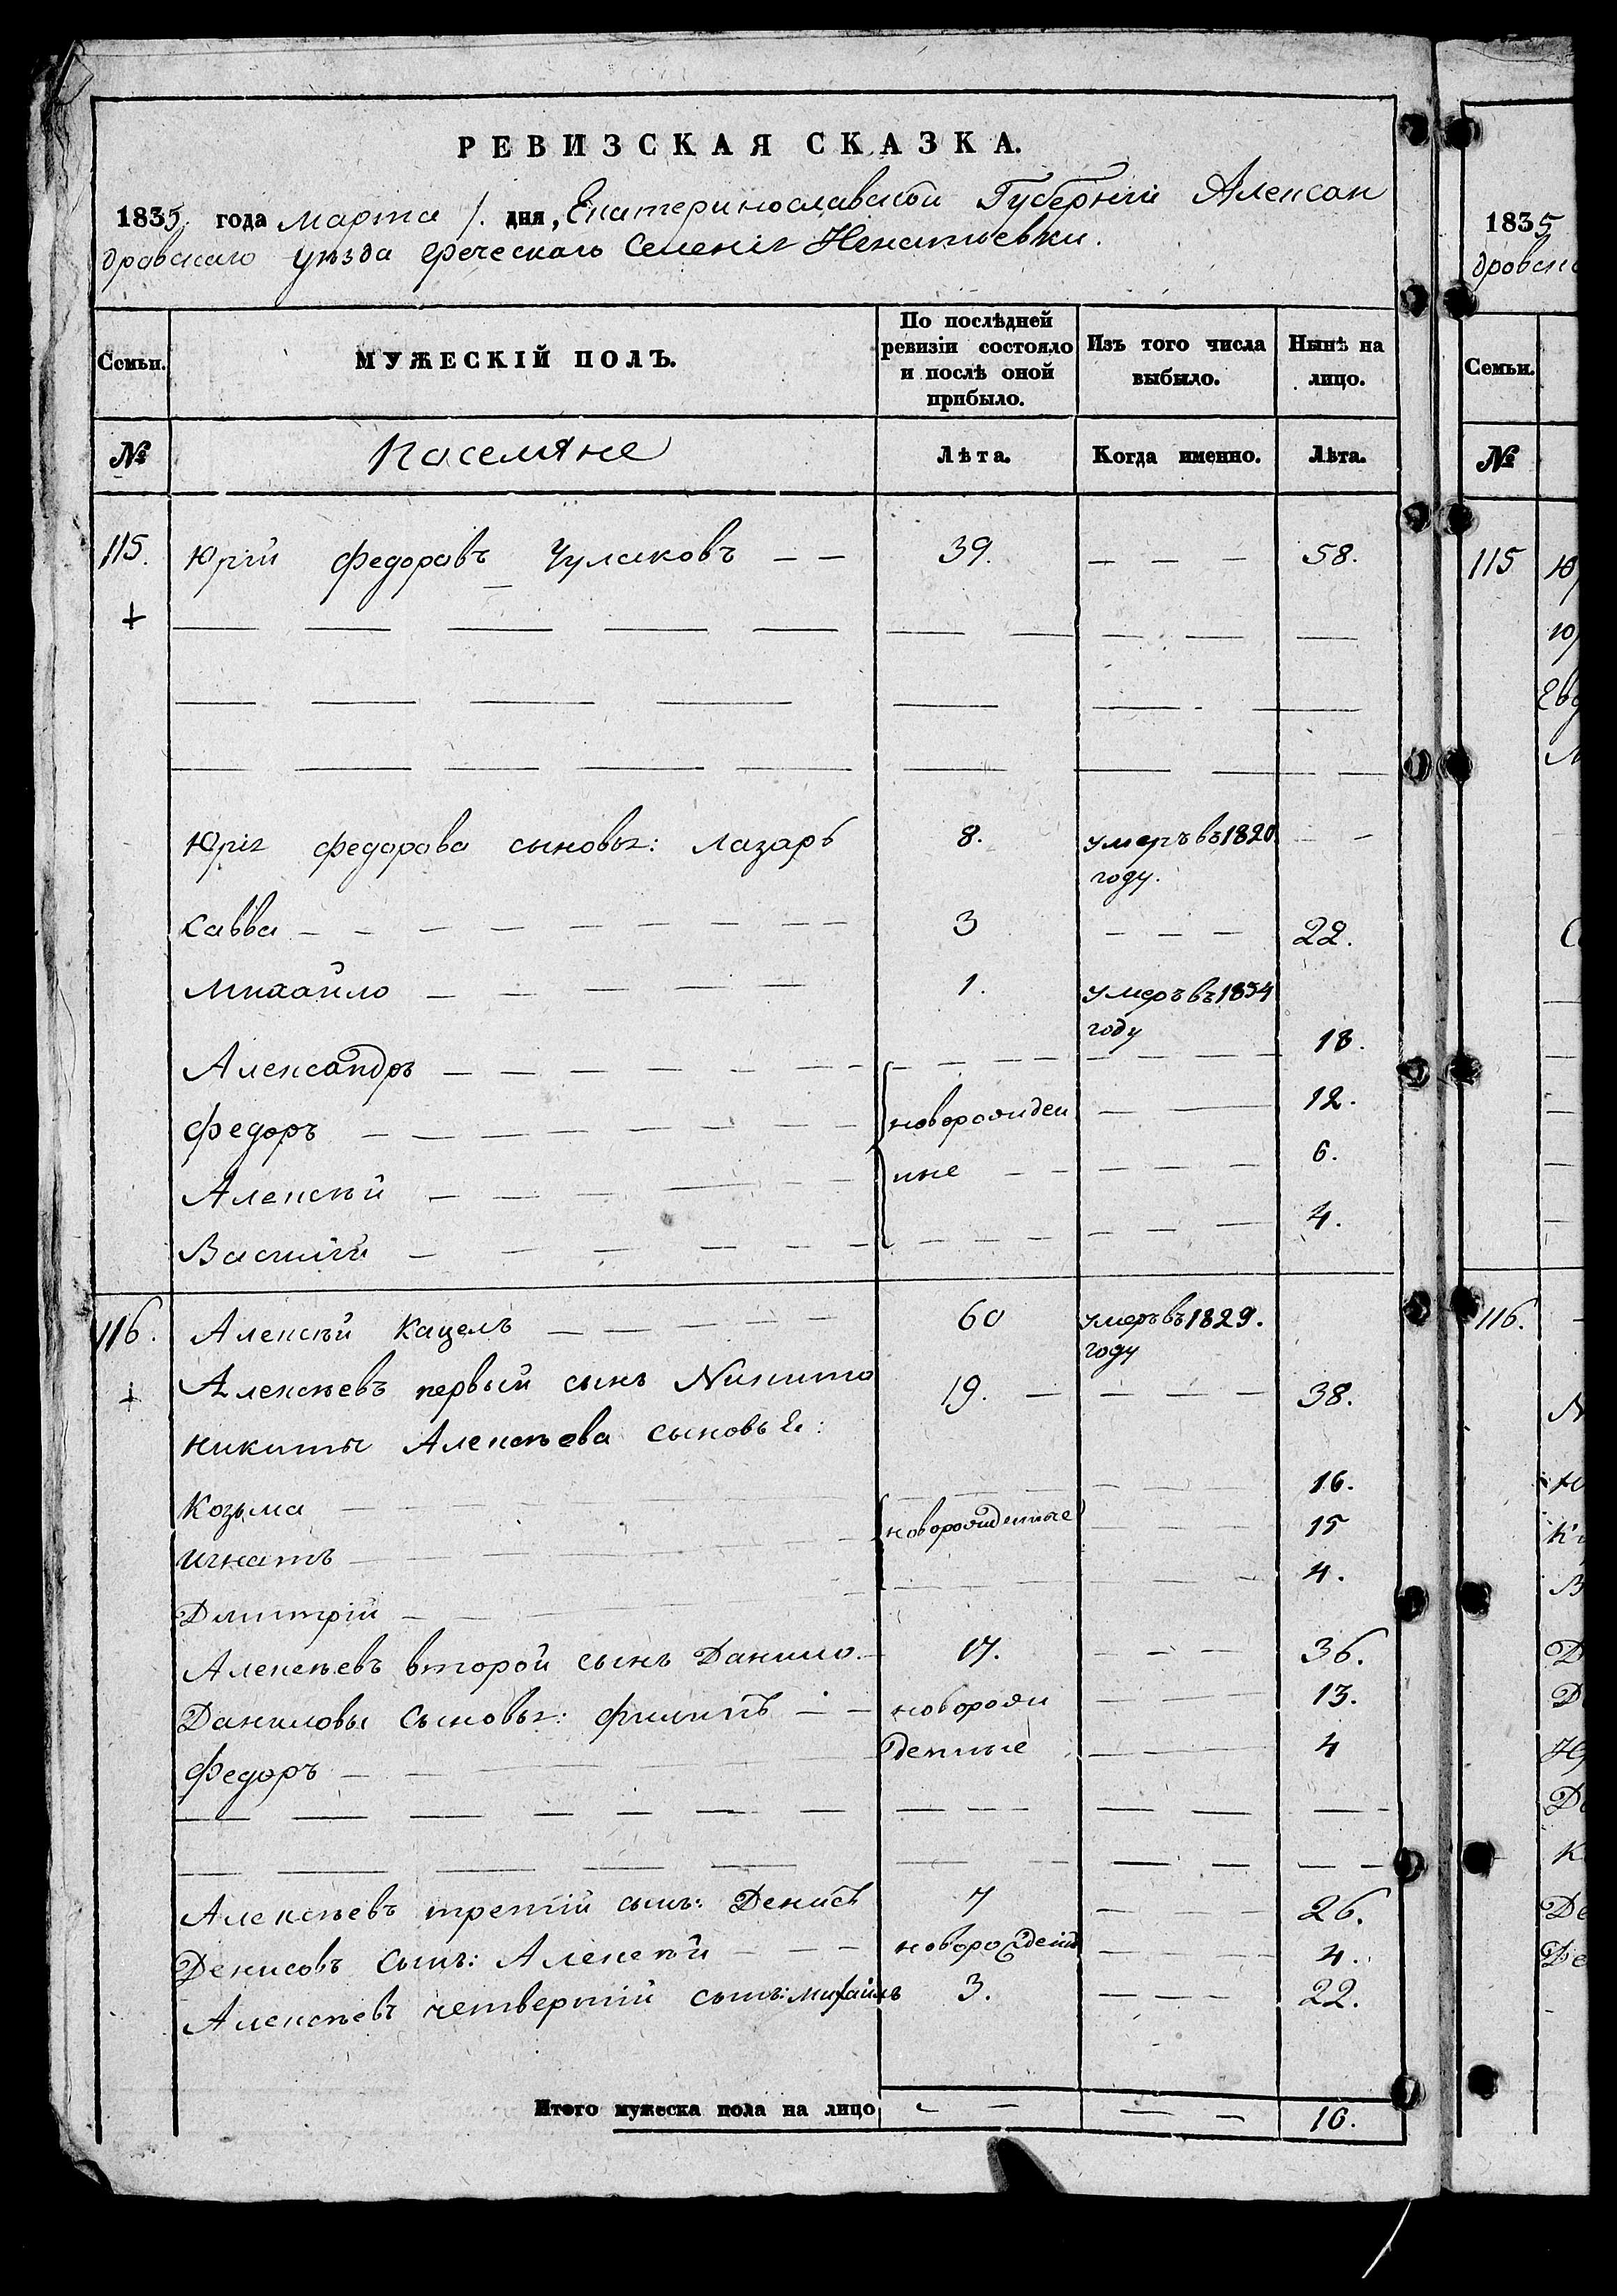 РЕВИЗСКАЯ СКАЗКА.
1835 года марта 1. дня, Екатеринославской Губерніи Алексан
дровскаго уѣзда греческаго Селенія Игнатьевки.
Семьи. МУЖЕСКІЙ ПОЛЪ. По послѣдней ревизіи состояло и послѣ оной прибыло. Изъ того числа выбыло. Нынѣ на лицо.
№ Поселяне Лѣта. Когда именно. Лѣта.
115. Юрій Федоровъ Чулаковъ — — 39. — — — 58.
+
Юрія Федорова сыновья: Лазарь 8. умеръ въ 1820 — —
году.
Савва — 3 — — — 22.
Михайло — 1. умеръ въ 1834
году
Александръ — 18.
Федоръ — новорожден — 12.
Алексѣй — ные — 6.
Василій — 4.
116. Алексѣй Кацелъ — 60 умеръ въ 1829.
году
+ Алексѣевъ первый сынъ Никита 19. — — — 38.
Никиты Алексѣева сыновья:
Козьма — 16.
Игнатъ — новорожденные — 15
Дмитрій — 4.
Алексѣевъ второй сынъ Данило. — 17. — — — 36.
Даниловы сыновья: Филипъ — — новорож — 13.
Федоръ — денные — 4
Алексѣевъ третій сынъ: Денисъ 7 — — — 26.
Денисовъ сынъ: Алексѣй — — — новорожденъ — 4.
Алексѣевъ четвертій сынъ: Михаилъ 3. — — — 22.
Итого мужеска пола на лицо — — — — 16.
1835
дровск
Семьи.
№
115 Ю
Ю
Евд
116.